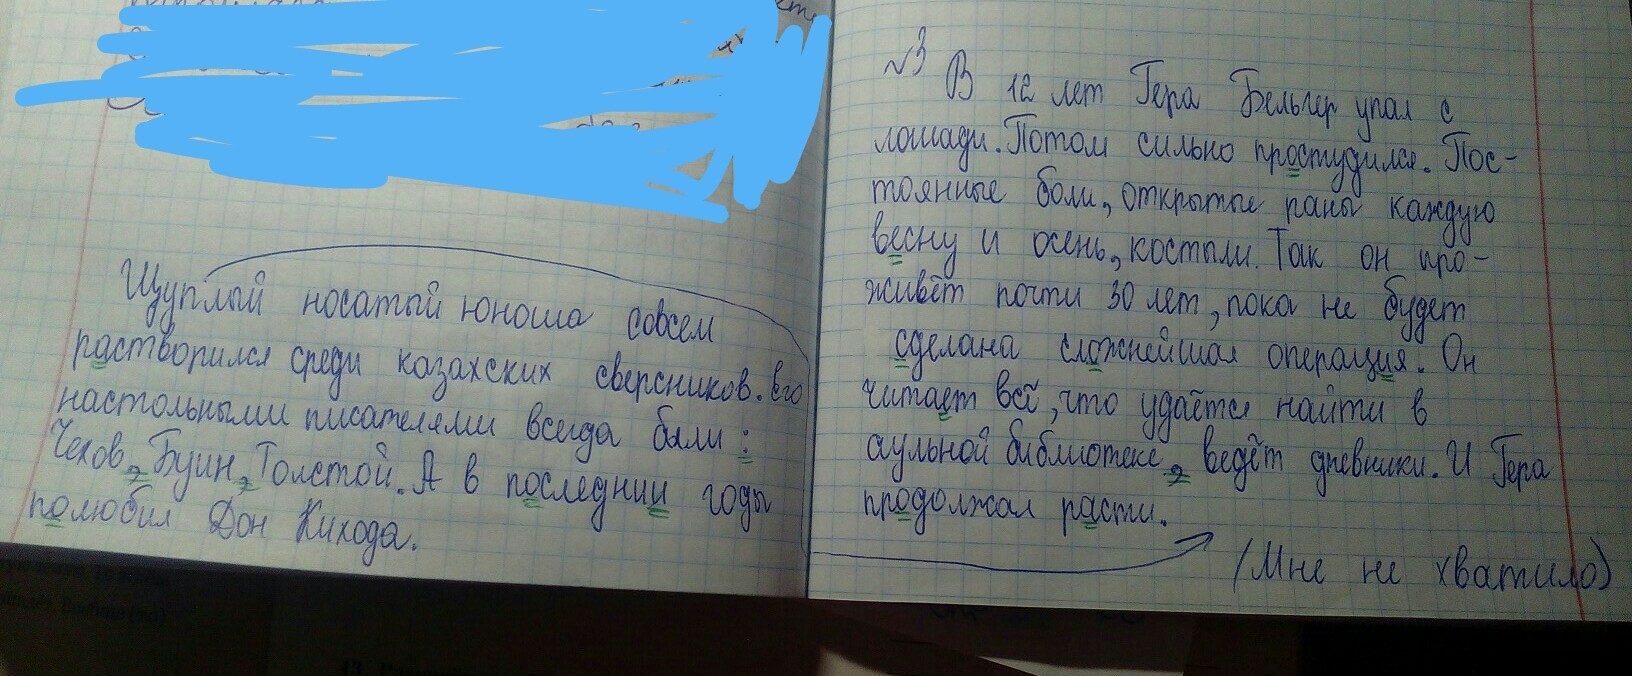 Щуплый носатый юноша совсем
растворился среди казахских сверсников. Его
настольными писателями всегда были:
Чехов, Буин, Толстой. А в последнии годы
полюбил Дон Кихода.
№3
В 12 лет Гера Бельгер упал с
лошади. Потом сильно простудился. Пос-
тоянные боли, открытые раны каждую
весну и осень, костыли. Так он про-
живёт почти 30 лет, пока не будет
сделана сложнейшая операция. Он
читает всё, что удаётся найти в
аульной библиотеке, ведёт дневники. И Гера
продолжал расти.
(Мне не хватило)